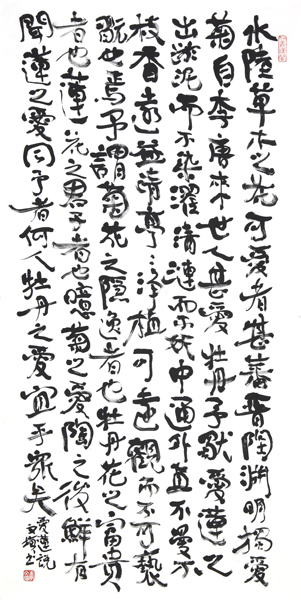 水陸草木之花可愛者甚蕃晉陶淵明獨愛
菊自李唐來世人甚愛牡丹予獨愛蓮之
出淤泥而不染濯清漣而不妖中通外直不蔓不
枝香遠益清亭々淨植可遠觀而不可褻
翫也焉予謂菊花之隱逸者也牡丹花之富貴
者也蓮花之君子者也噫菊之愛陶之後鮮有
聞蓮之愛同予者何人牡丹之愛宜乎衆矣
愛蓮說